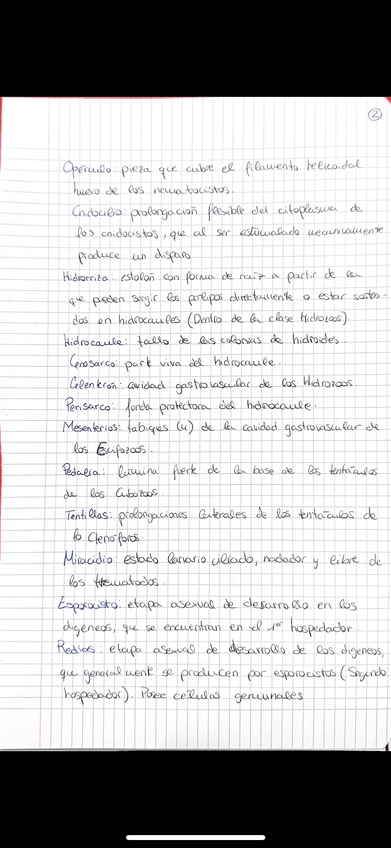 2
Opérculo: pieza que cubre el filamento helicoidal
hueco de los nematocistos.
Cnidocilio: prolongación flexible del citoplasma de
los cnidocistos, que al ser estimulado mecánicamente
produce un disparo
Hidrorriza: estolón con forma de raíz a partir de la
que pueden surgir los pólipos directamente o estar sosteni-
dos en hidrocaules (Dentro de la clase Hidrozoos).
Hidrocaule: tallo de las colonias de hidroides
Cenosarco: parte viva del hidrocaule.
Celenterón: cavidad gastrovascular de los Hidrozoos
Perisarco: funda protectora del hidrocaule.
Mesenterios: tabiques (4) de la cavidad gastrovascular de
los Escifozoos.
Pedalia: lámina fuerte de la base de los tentáculos
de los Cubozoos.
Tentillas: prolongaciones laterales de los tentáculos de
lo Ctenóforos.
Miracidio: estado larvario ciliado, nadador y libre de
los trematodos.
Esporocisto: etapa asexual de desarrollo en los
digeneos, que se encuentran en el 1er hospedador
Redias: etapa asexual de desarrollo de los digeneos,
que generalment se producen por esporocistos (Segundo
hospedador). Posee células germinales